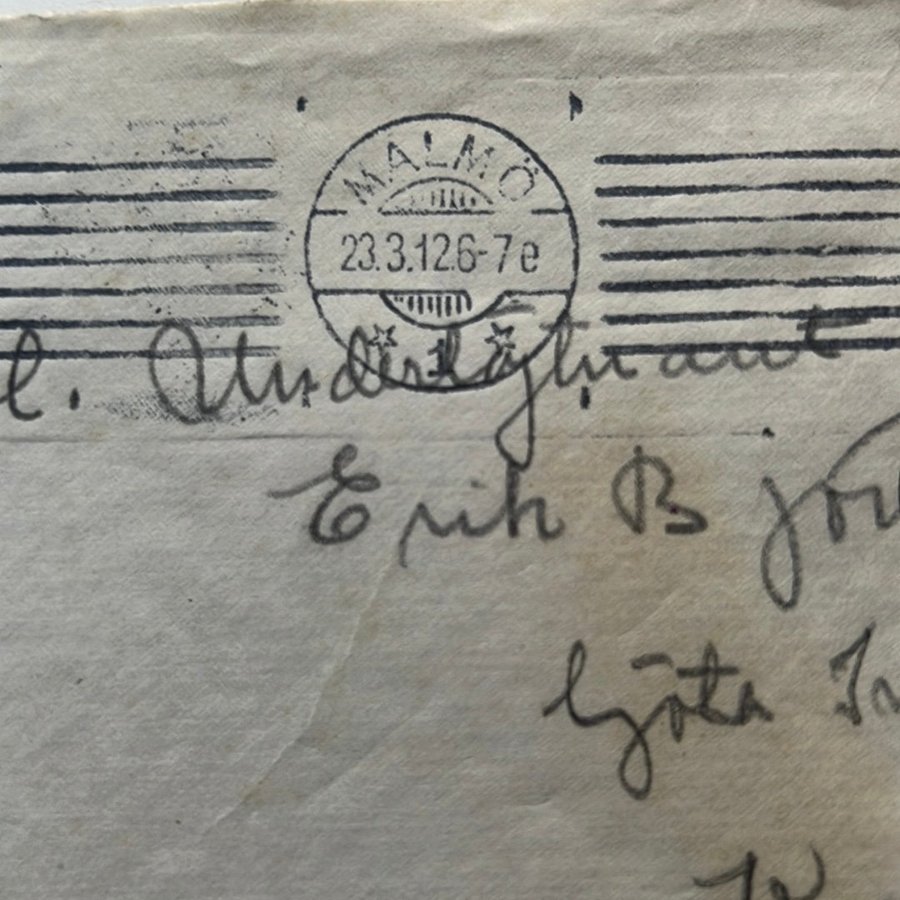 MALMÖ
23.3.12 6-7 e
1
l. Underlöjtnant
Erik Björ
Göta In